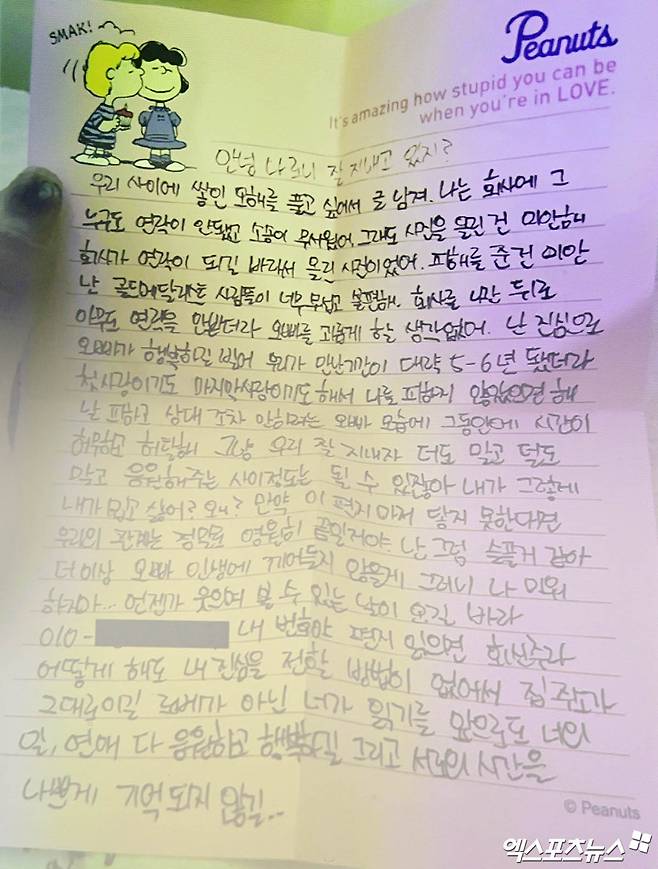 SMAK!
Peanuts
It's amazing how stupid you can be
when you're in LOVE.
안녕 나 잘 지내고 있지?
우리 사이에 쌓인 오해를 풀고 싶어서 글 남겨. 나는 회사에 그
누구도 연락이 안됐고 소송이 무서웠어. 그래도 사진을 올린 건 미안해
회사가 연락이 되길 바라서 올린 사진이었어. 피해를 준건 미안
난 골드메달리스트 사람들이 너무 무섭고 불편해. 회사를 나간 뒤로
아무도 연락을 안받더라 오빠를 괴롭게 할 생각 없어. 난 진심으로
오빠가 행복하길 빌어 우리가 만난기간이 대략 5-6년 됐더라
첫사랑이기도 마지막사랑이기도 해서 나를 피하지 않았으면 해
날 피하고 상대 조차 안하려는 오빠 모습에 그동안에 시간이
허무하고 허탈해 그냥 우리 잘 지내자 더도 말고 덜도
말고 응원해주는 사이정도는 될 수 있잖아 내가 그렇게
내가 밉고 싫어? 왜? 만약 이 편지마저 닿지 못한다면
우리의 관계는 정말로 영원히 끝일거야. 난 그럼 슬플거 같아
더이상 오빠 인생에 끼어들지 않을게 그러니 나 미워
하지마... 언젠가 웃으며 볼 수 있는 날이 오길 바라
010- 내 번호야 편지 읽으면 회신주라
어떻게 해도 내 진심을 전할 방법이 없어서 집 주소가
그대로이길 로베가 아닌 너가 읽기를 앞으로도 너의
일, 연애 다 응원하고 행복하길 그리고 서로의 시간을
나쁘게 기억되지 않길..
© Peanuts
엑스포츠뉴스